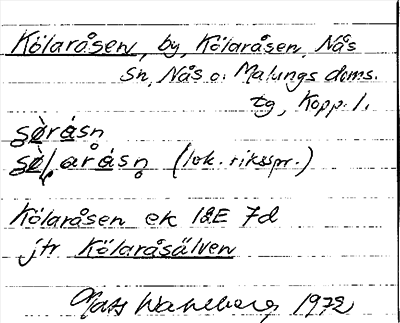 Kölaråsen, by, Kölaråsen, Nås
sn, Nås o. Malungs doms.
tg, Kopp. l.
(lok. riksspr.)
Kölaråsen ek 12E 7d
jtr Kölaråsälven
Mats Wahlberg 1972